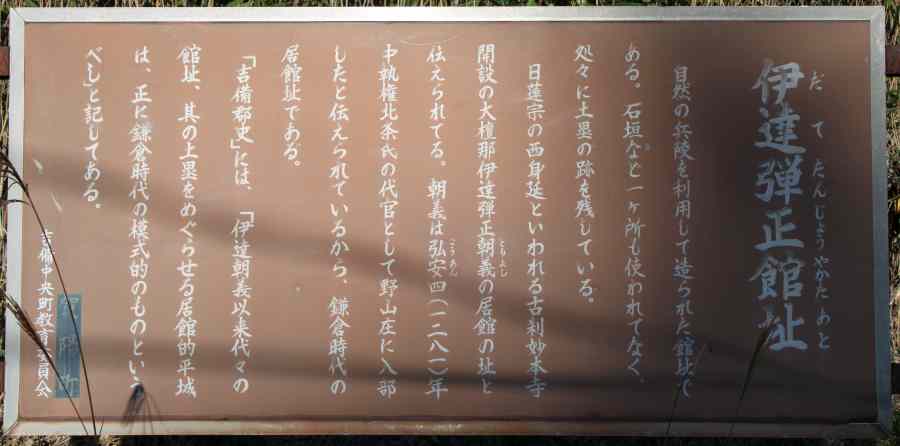 伊達彈正館址
だて たんじょうやかたあと
自然の兵陵を利用して造られた館址で
ある。石垣など一ヶ所も使われてなく、
処々に土塁の跡を残している。
日蓮宗の西身延といわれる古刹妙本寺
開設の大檀那伊達彈正朝義の居館の址と
ともよし
伝えられてる。朝義は弘安四(一二八一)年
こうあん
中執権北条氏の代官として野山庄に入部
したと伝えられているから、鎌倉時代の
居館址である。
「吉備郡史」には、「伊達朝義以来代々の
館址、其の土塁をめぐらせる居館的平城
は、正に鎌倉時代の模式的のものという
べし」と記してある。
吉備中央町教育委員会